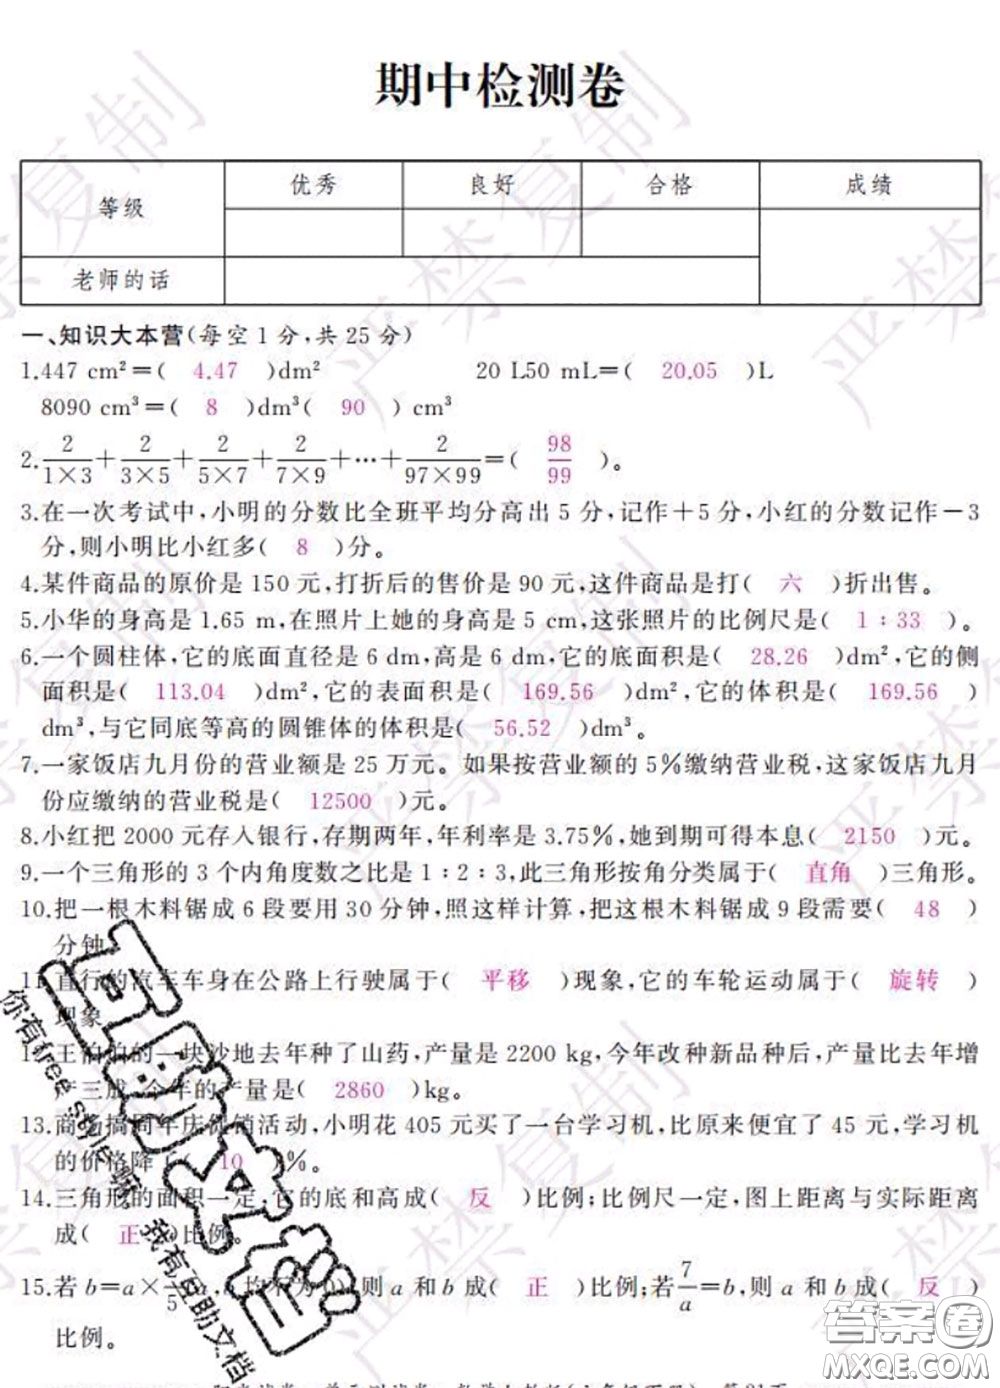 期中检测卷
等级 优秀 良好 合格 成绩
老师的话
一、知识大本营(每空1分,共25分)
1.447 cm²=( 4.47 )dm² 20 L50 mL=( 20.05 )L
8090 cm³=( 8 )dm³( 90 ) cm³
2. 2/(1×3)+2/(3×5)+2/(5×7)+2/(7×9)+…+2/(97×99)=( 98/99 )。
3.在一次考试中,小明的分数比全班平均分高出5分,记作+5分,小红的分数记作-3
分,则小明比小红多( 8 )分。
4.某件商品的原价是150元,打折后的售价是90元,这件商品是打( 六 )折出售。
5.小华的身高是1.65 m,在照片上她的身高是5 cm,这张照片的比例尺是( 1∶33 )。
6.一个圆柱体,它的底面直径是6 dm,高是6 dm,它的底面积是( 28.26 )dm²,它的侧
面积是( 113.04 )dm²,它的表面积是( 169.56 )dm²,它的体积是( 169.56 )
dm³,与它同底等高的圆锥体的体积是( 56.52 )dm³。
7.一家饭店九月份的营业额是25万元。如果按营业额的5%缴纳营业税,这家饭店九月
份应缴纳的营业税是( 12500 )元。
8.小红把2000元存入银行,存期两年,年利率是3.75%,她到期可得本息( 2150 )元。
9.一个三角形的3个内角度数之比是1∶2∶3,此三角形按角分类属于( 直角 )三角形。
10.把一根木料锯成6段要用30分钟,照这样计算,把这根木料锯成9段需要( 48 )
分钟
11.直行的汽车车身在公路上行驶属于( 平移 )现象,它的车轮运动属于( 旋转 )
现象
12.王伯伯的一块沙地去年种了山药,产量是2200 kg,今年改种新品种后,产量比去年增
产三成,今年的产量是( 2860 )kg。
13.商场搞周年庆促销活动,小明花405元买了一台学习机,比原来便宜了45元,学习机
的价格降了( 10 )%。
14.三角形的面积一定,它的底和高成( 反 )比例;比例尺一定,图上距离与实际距离
成( 正 )比例。
15.若b=a×7/5(a,b均不为0),则a和b成( 正 )比例;若7/a=b,则a和b成( 反 )
比例。
你有free style嘛
我有互助文档
答案圈
MXQE.COM
严禁复制